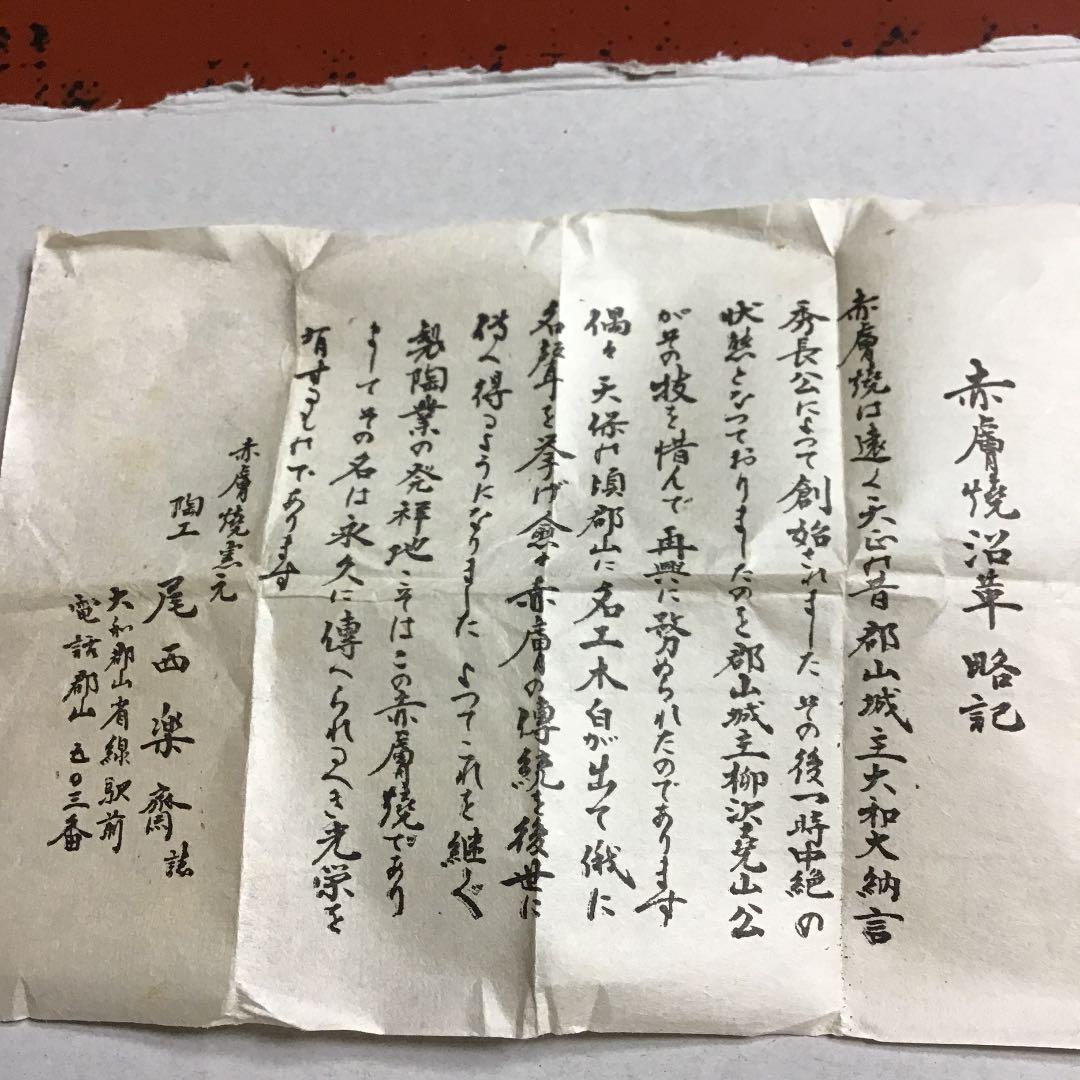 赤膚燒沿革略記
赤膚燒は遠く天正の昔郡山城主大和大納言
秀長公によつて創始されました その後一時中絶の
状態となつておりましたのを郡山城主柳沢堯山公
がその技を惜んで再興に努められたのであります
偶々天保の頃郡山に名工木白が出て俄に
名聲を挙げ愈々赤膚の傳統を後世に
傳へ得るようになりました よつてこれを継ぐ
製陶業の発祥地こそはこの赤膚燒であり
ましてその名は永久に傳へられるべき光栄を
有するものであります
赤膚燒窯元
陶工 尾西楽齋 誌
大和郡山省線駅前
電話郡山 五〇三番